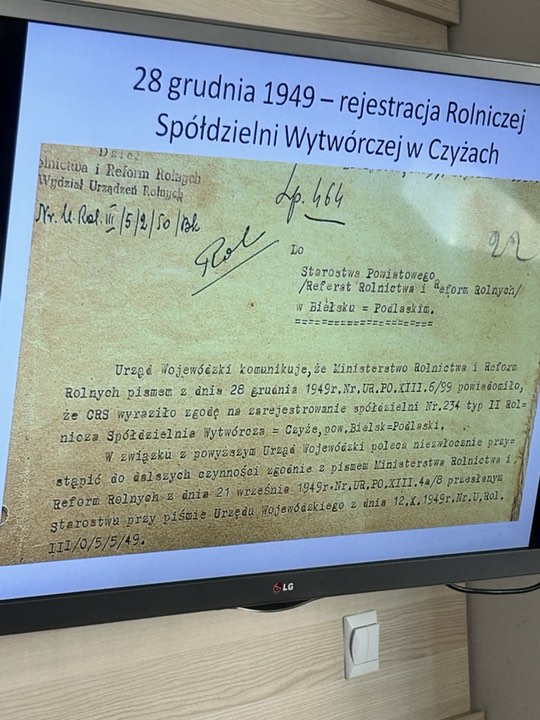 28 grudnia 1949 – rejestracja Rolniczej
Spółdzielni Wytwórczej w Czyżach
Dział
Rolnictwa i Reform Rolnych
Wydział Urządzeń Rolnych
Nr. U. Rol. III/5/2/50/Bk
Lp. 464
Rol
22
Do
Starostwa Powiatowego
/Referat Rolnictwa i Reform Rolnych/
w Bielsku = Podlaskim.
======================
Urząd Wojewódzki komunikuje, że Ministerstwo Rolnictwa i Reform
Rolnych pismem z dnia 28 grudnia 1949r.Nr.UR.PO.XIII.6/99 powiadomiło,
że CRS wyraziło zgodę na zarejestrowanie spółdzielni Nr.234 typ II Rol=
nicza Spółdzielnia Wytwórcza = Czyże,pow.Bielsk=Podlaski.
W związku z powyższym Urząd Wojewódzki poleca niezwłocznie przy=
stąpić do dalszych czynności zgodnie z pismem Ministerstwa Rolnictwa i
Reform Rolnych z dnia 21 września 1949r.Nr.UR.PO.XIII.4a/8 przesłanym
Starostwu przy piśmie Urzędu Wojewódzkiego z dnia 12.X.1949r.Nr.U.Rol.
III/0/5/5/49.
LG